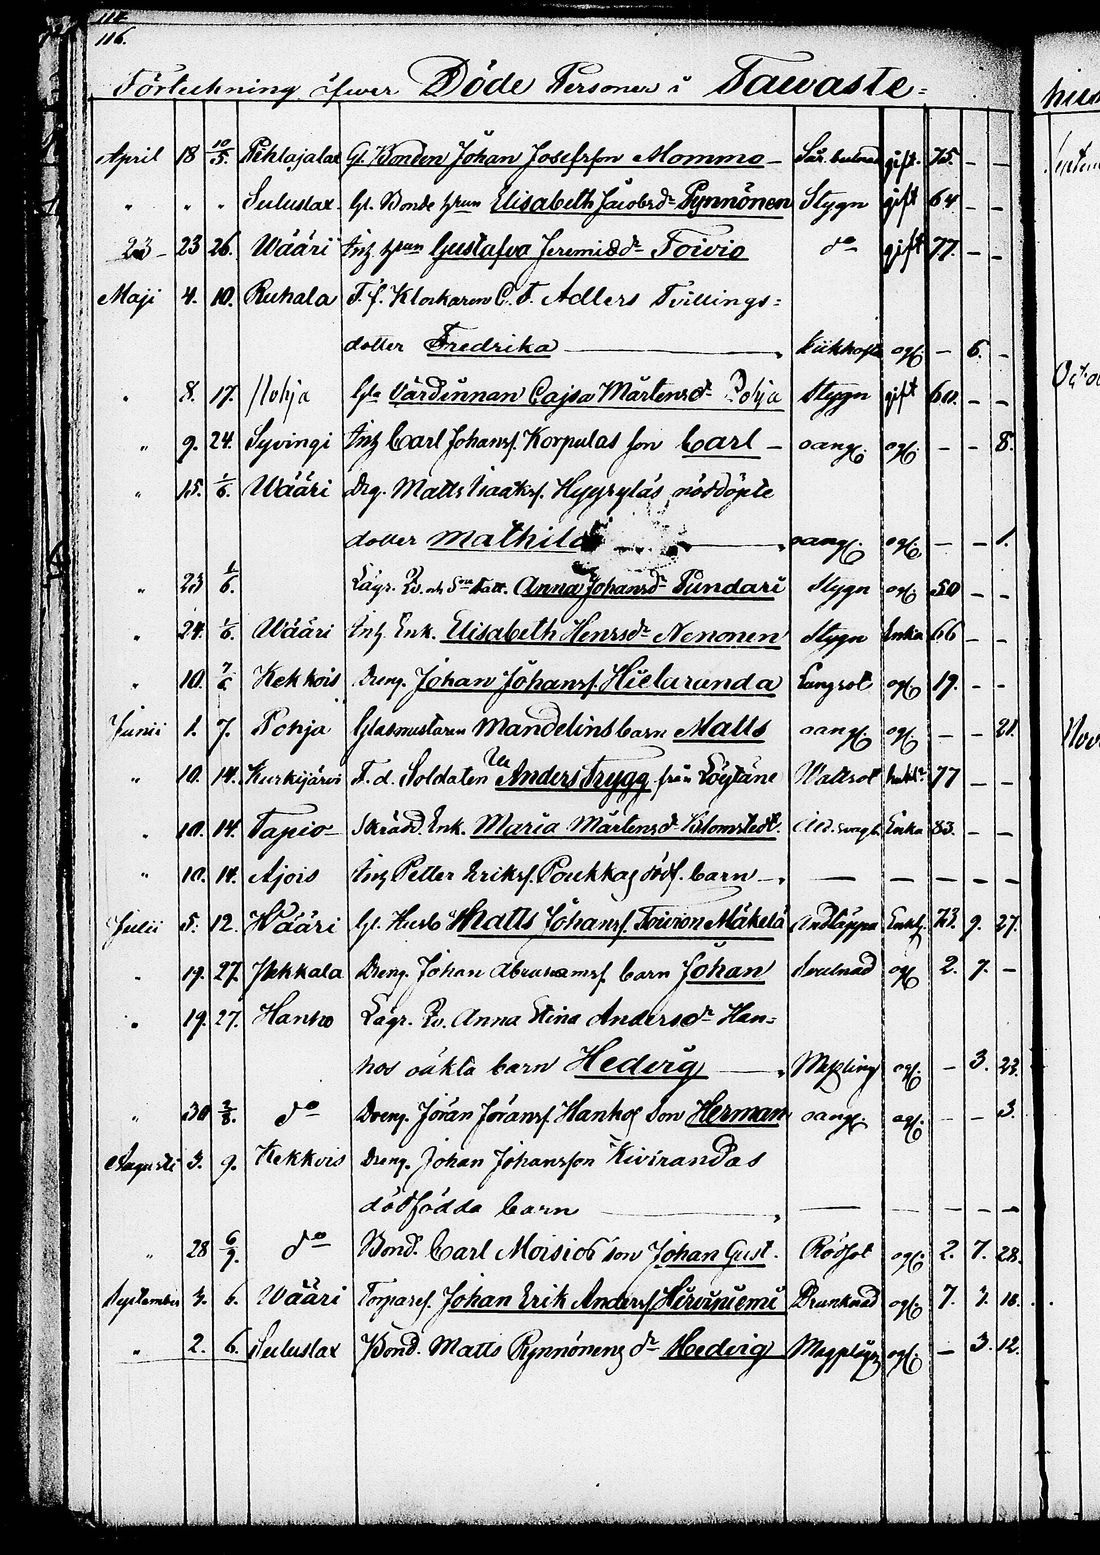 116.
Förteckning öfwer Döde Personer i Tawaste=
April 18 10/5. Pehlajalax Gl. Bonden Johan Josefsson Mommo – gift. 75. – –
" " " Suluslax. Gl. Bonde hrun Elisabeth Jacobsdr Pynnönen Stygn gift 64 – –
23 – 23 26. Wääri Inh hrun Gustafva Jeremiædr Toivio do gift 77. – –
Maji 4. 10. Ruhala F. f. Klockaren C. F. Adlers Tvillings=
dotter Fredrika Kikhosta ogf. – 6. –
" 8. 17. Pohja Gla Värdinnan Cajsa Mårtensdr Pohja Stygn gift 60. – –
" 9. 24. Syvingi Inh Carl Johansf. Korpulas son Carl – oang. ogf. – – 8.
" 15. 1/6. Wääri Drg. Matts Isaaksf. Hyyryläs nöddöpte
dotter Mathilda oang. ogf. – – 1.
" 23 1/6. Lägr. Anna Johansdr Pundari Stygn ogf. 50 – –
" 24. 1/6. Wääri Inh. Enk. Elisabeth Henrsdr Nenonen Stygn Enka 66 – –
" 10. 7/6 Kekkois Dreng. Johan Johansf. Hielaranda Lungsot ogf. 19. – –
Junii 1. 7. Pohja Glasmästaren Mandelins barn Matts oang. ogf. – – 21.
" 10. 14. Kurkijärvi F. d. Soldaten Anders Trygg från Löytäne Wattsot 77 – –
" 10. 14. Tapio– Skrädd. Enk. Maria Mårtensdr Blomstedt. Enka 83. – –
" 10. 14. Ajois Inh Petter Eriksf. Poukkas dödf. barn – – – – –
Julii 5. 12. Wääri Gl. Husb Matts Johansf. Toivion Mäkelä Andtäppa Enkl. 73. 9. 27.
" 19. 27. Pekkala Dreng. Johan Abrahamsf. barn Johan Svulnad ogf. 2. 7. –
" 19. 27. Hanho Lägr. Pv. Anna Stina Andersdr Han=
hos oäkta barn Hedvig Messling ogf. – 3. 23.
" 30 2/8. do Dreng. Jöran Jöransf. Hanhos son Herman oang. ogf. – – 3.
Augusti 3. 9. Kekkois Dreng. Johan Johansson Kivirandas
dödfödda barn – – – – –
" 28 6/9. do Bond. Carl Moisios son Johan Gust. Rödsot ogf. 2. 7. 28.
September 3. 6. Wääri Torparef. Johan Erik Andersf Hirviniemi Drunknad ogf. 7. 3. 18.
" 2. 6. Suluslax Bond. Matts Pynnönens dr Hedvig ogf. – 3. 12.